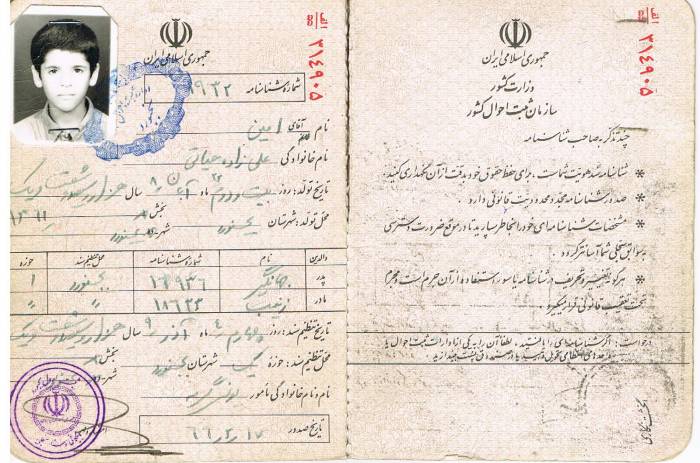 الف
۳۱٤۹۰۵
جمهوری اسلامی ایران
شماره شناسنامه ۹۳۲
نام آقای امین
نام خانوادگی علیزاده حیاتی
تاریخ تولد: روز بیست و دوم ۲۲ ماه آبان ۸ سال هزار و سیصد و شصت و یک
محل تولد: شهرستان بجنورد بخش
والدین نام شماره شناسنامه محل تنظیم سند حوزه
پدر جهانگیر ۱۶۹۳۶ بجنورد ۱
مادر زینب ۱۸۶۲۳ " "
تاریخ تنظیم سند: روز چهارم ۴ ماه آذر ۹ سال هزار و سیصد و شصت و یک
محل تنظیم سند: حوزه یک شهرستان بجنورد بخش
نام و نام خانوادگی مأمور
تاریخ صدور ۶۶٫۲٫۱۷
الف
۳۱٤۹۰۵
جمهوری اسلامی ایران
وزارت کشور
سازمان ثبت احوال کشور
چند تذکر به صاحب شناسنامه
* شناسنامه سند هویت شماست، برای حفظ حقوق خود بدقت از آن نگهداری کنید
* صدور شناسنامه مجدد محدودیت قانونی دارد.
* مشخصات شناسنامه‌ای خود را بخاطر بسپارید تا در موقع ضرورت دسترسی
به سوابق سجلی شما آسانتر گردد.
* هرگونه تغییر و تحریف در شناسنامه یا سوء استفاده از آن جرم است و مجرم
تحت تعقیب قانونی قرار میگیرد.
درخواست: اگر شناسنامه‌ای را یافتید، لطفاً آن را به یکی از ادارات ثبت احوال یا
مراجع انتظامی تحویل دهید یا در صندوق پست بیندازید